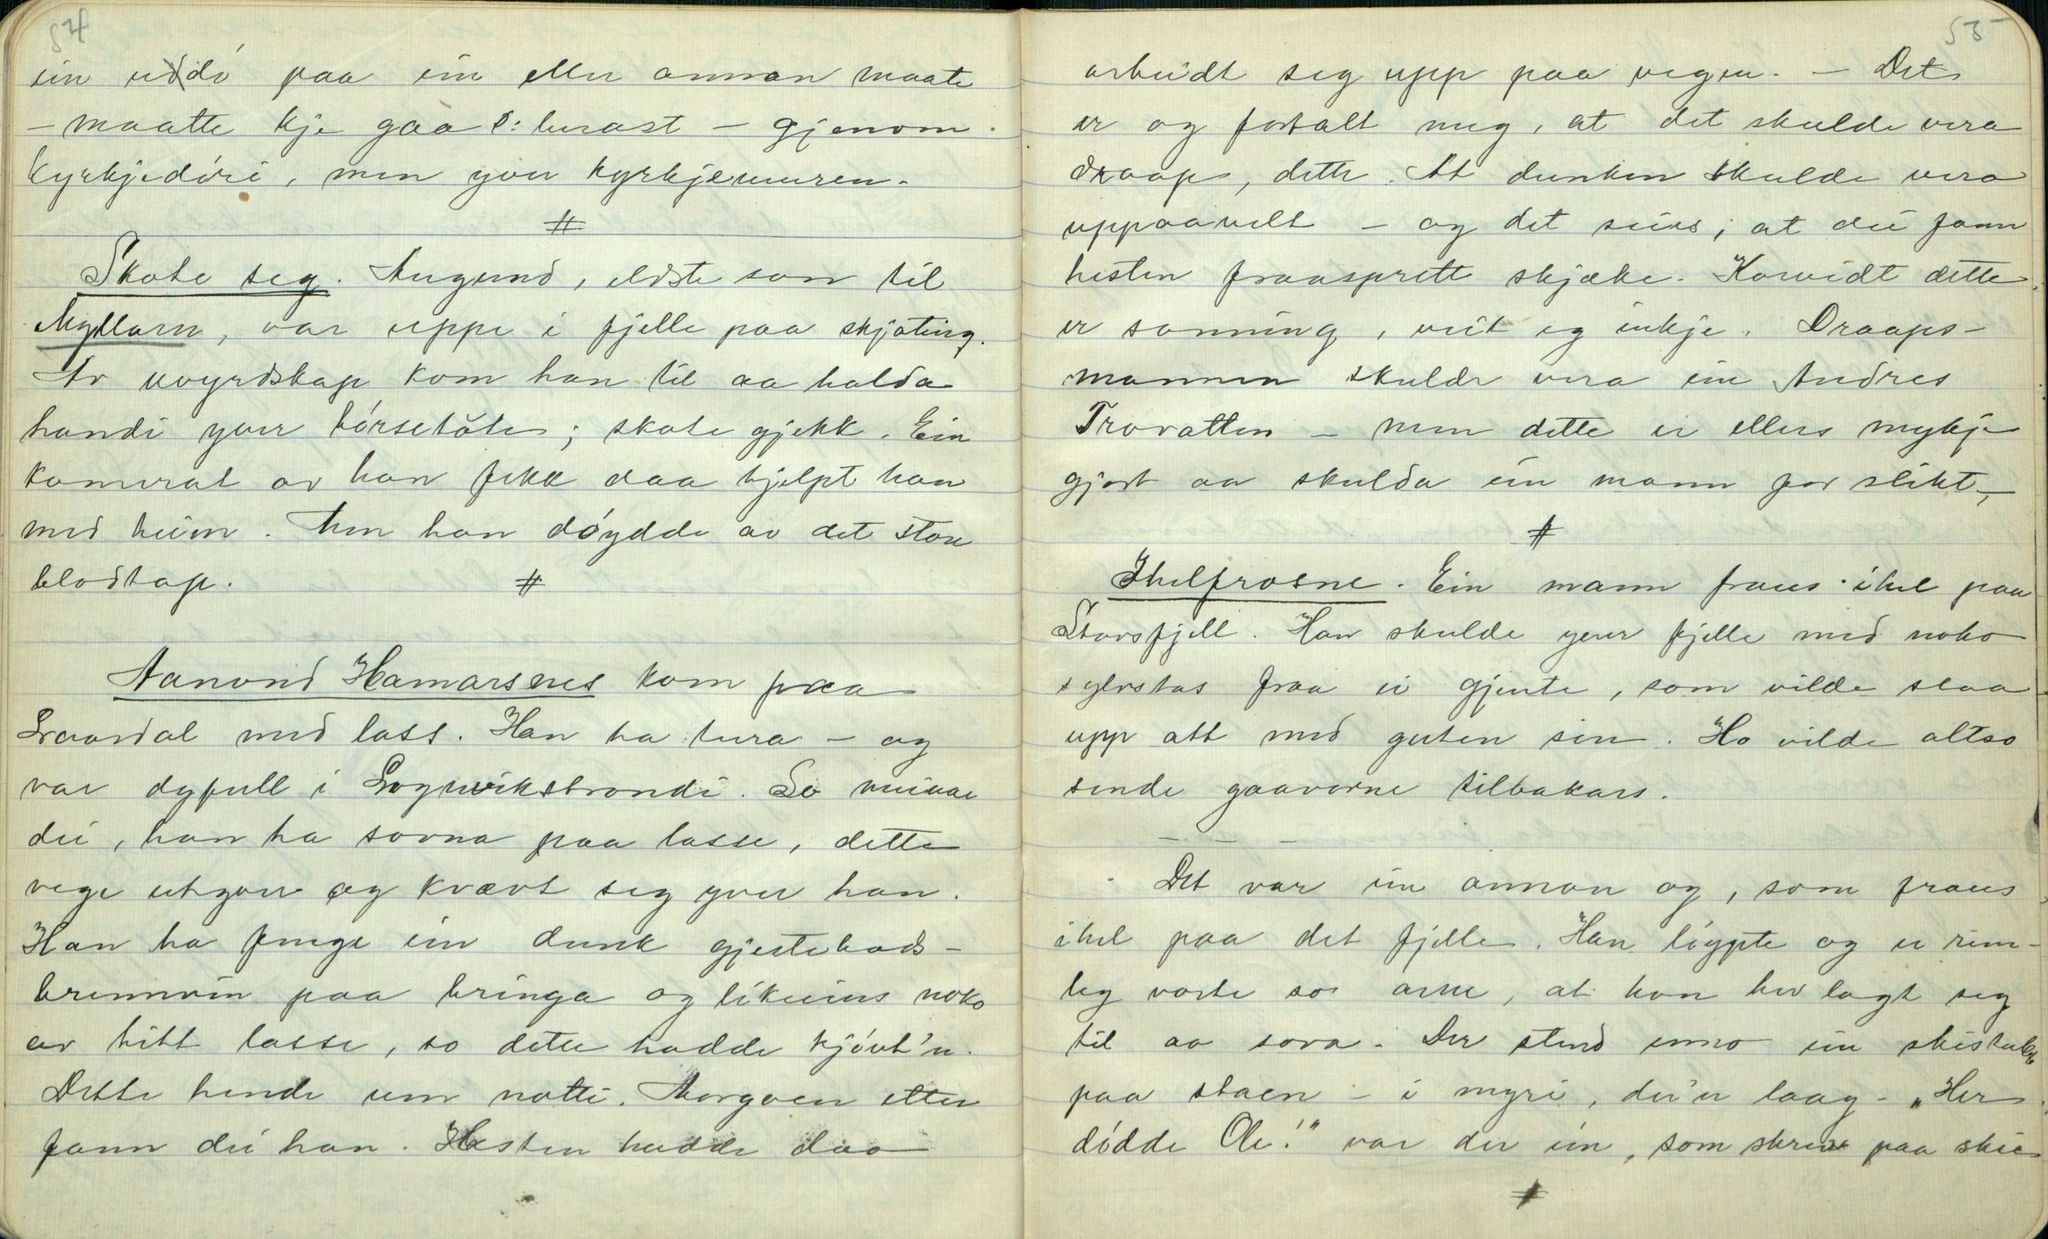 54
ein uddö paa ein eller annan maate
- maatte kje gaa o: berast - gjenom
kyrkjedöri, men yver kyrkjemuren.
#
Skote seg. Augund, eldste son til
Myllarn, var uppe i fjelle paa skjoting.
Av uvyrdskap kom han til aa halda
handi yver börsetöte; skote gjekk. Ein
kamerat av han fekk daa hjelpt han
med heim. Men han döydde av det store
blodtap.
#
Aanond Hamarsnes kom paa
Lraardal med lass. Han ha tura - og
var dyfull i Lognvikstrondi. So meinar
dei, han ha sovna paa lasse, dette
vege utyver og kvævt seg yver han.
Han ha fenge ein dunk gjestebods-
brennvin paa bringa og likeeins noko
av hitt lasse, so dette hadde kjövt'n.
Dette hende um notti. Morgoen etter
fann dei han. Hesten hadde daa
55
arbeidt seg upp paa vegen. - Det
er og fortalt meg, at det skulde vera
draap, dette. At dunken skulde vera
uppaavelt - og det seies, at dei fann
hesten fraasprett skjæke. Korvidt dette
er sanning, veit eg inkje. Draaps-
mannen skulde vera ein Andres
Trovatten - men dette er ellers mykje
gjort aa skulda ein mann for slikt, -
#
Ihelfrosne. Ein mann fraus ihel paa
Storsfjell. Han skulde yver fjelle med noko
sylvstas fraa ei gjente, som vilde slaa
upp att med guten sin. Ho vilde altso
sende gaavorne tilbakars.
- - -
Det var ein annan og, som fraus
ihel paa det fjelle. Han löypte og er rime-
leg vorte so arme, at han hev lagt seg
til aa sova. Der stend enno ein skistubbe
paa staen - i myri, der'n laag. "Her
dödde Ole!" var der ein, som skreiv paa skie
#